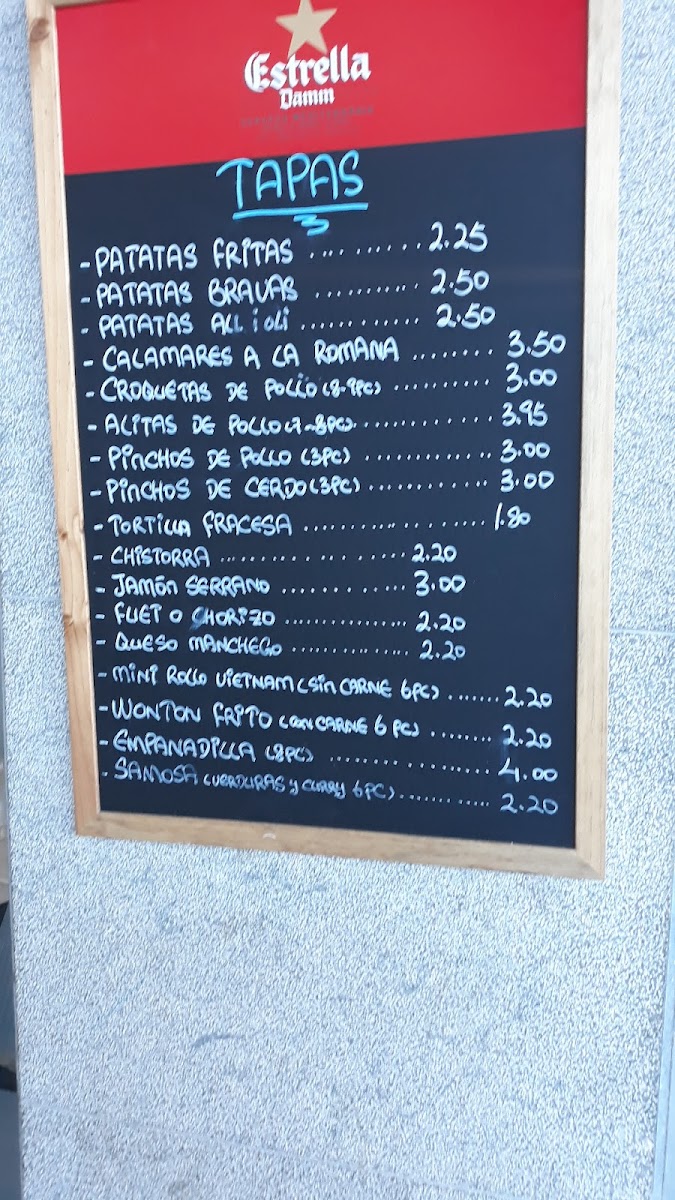 Estrella
Damm
TAPAS
- PATATAS FRITAS .......... 2.25
- PATATAS BRAVAS ........... 2.50
- PATATAS ALLiOLi ............ 2.50
- CALAMARES A LA ROMANA ........ 3.50
- CROQUETAS DE POLLO (8-9PC) .......... 3.00
- ALITAS DE POLLO (7-8PC) .............. 3.95
- PINCHOS DE POLLO (3PC) ............. 3.00
- PINCHOS DE CERDO (3PC) ............ 3.00
- TORTILLA FRACESA .................. 1.80
- CHISTORRA .................. 2.20
- JAMÓN SERRANO ............ 3.00
- FUET O CHORIZO .............. 2.20
- QUESO MANCHEGO ............. 2.20
- MINI ROLLO VIETNAM (SIN CARNE 6PC) ....... 2.20
- WONTON FRITO (CON CARNE 6 PC) ........ 2.20
- EMPANADILLA (8PC) ................ 4.00
- SAMOSA (VERDURAS Y CURRY 6PC) ............ 2.20